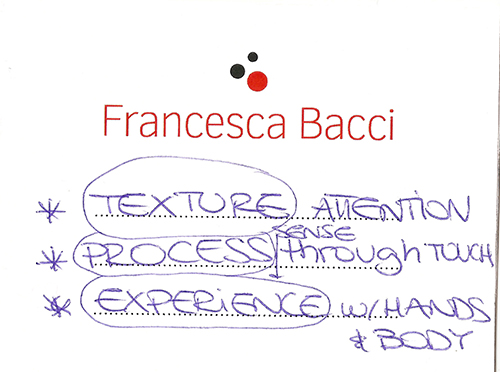 Francesca Bacci
* TEXTURE ATTENTION
* PROCESS SENSE through TOUCH
* EXPERIENCE w/ HANDS
& BODY